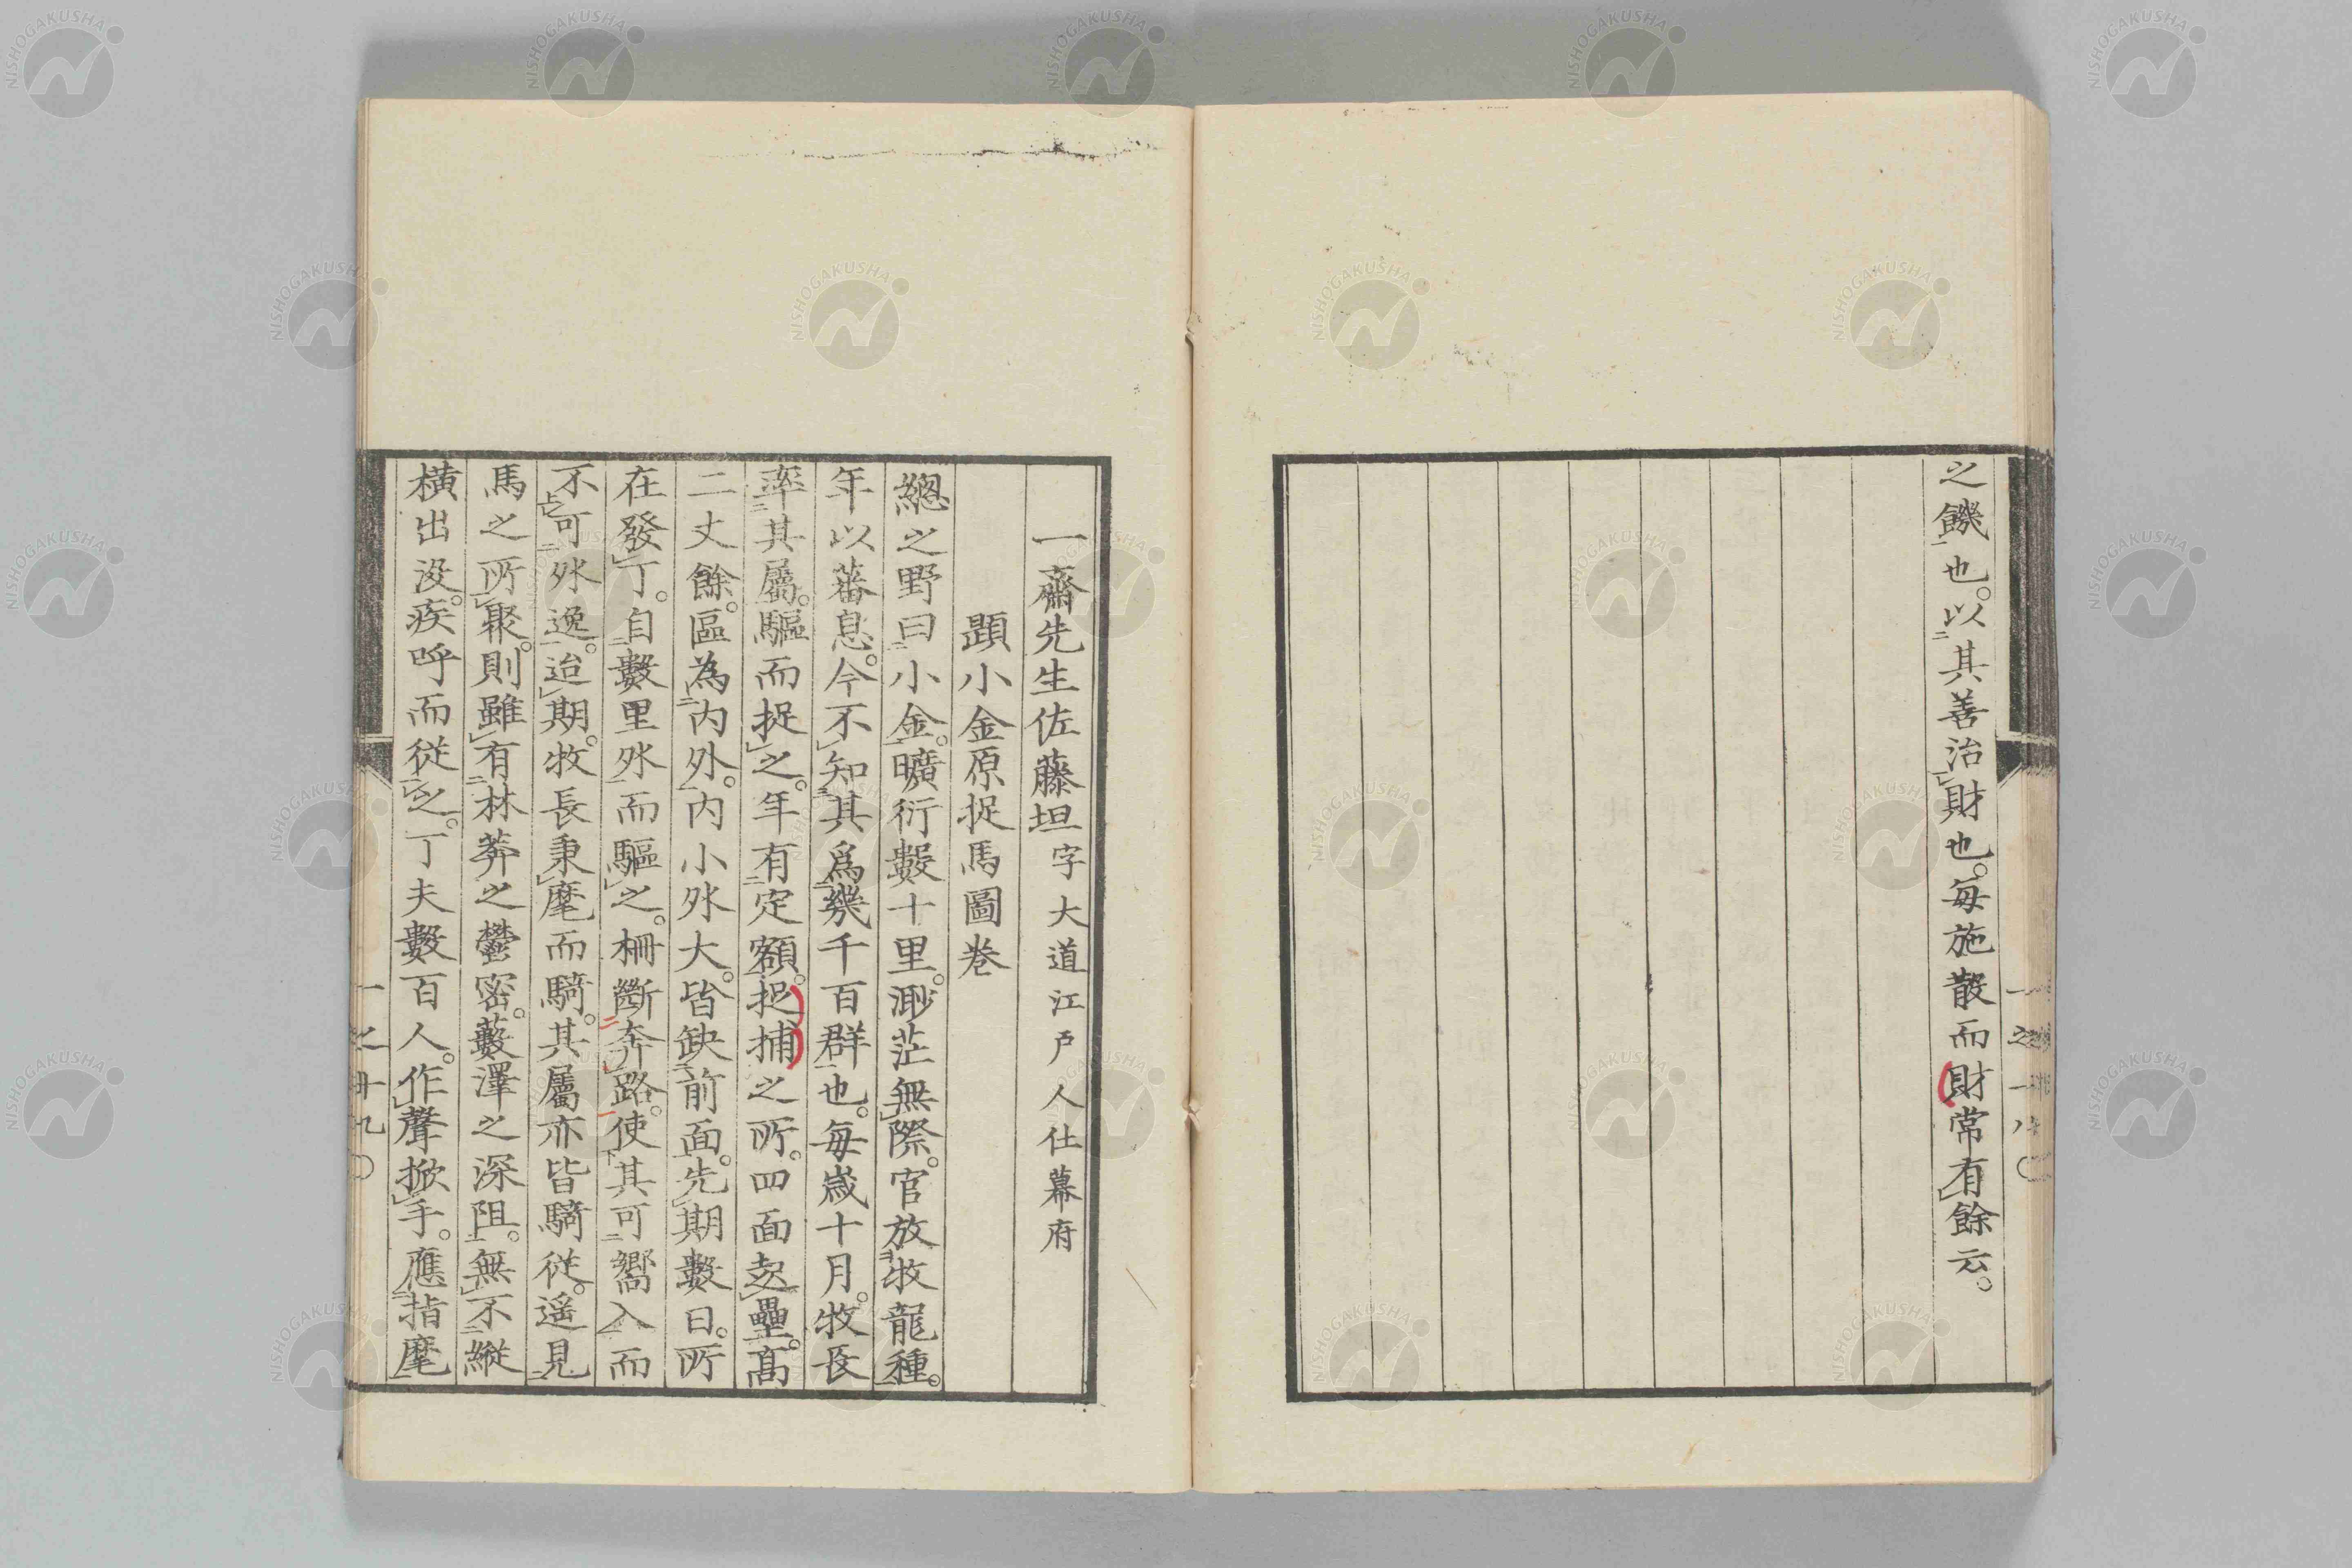 之饑也。以其善治財也。每施散而財常有餘云。
一齋先生佐藤坦字大道江戸人仕幕府
題小金原捉馬圖卷
總之野曰小金。曠衍數十里。渺茫無際。官放牧龍種。
年以蕃息。今不知其爲幾千百群也。每歲十月。牧長
率其屬。驅而捉之。年有定額。捉捕之所。四面起壘。高
二丈餘。區為内外。内小外大。皆缺前面。先期數日。所
在發丁。自數里外而驅之。柵斷奔路。使其可嚮入而
不可外逸。迨期。牧長秉麾而騎。其屬亦皆騎從。遥見
馬之所聚。則雖有林莽之鬱密。藪澤之深阻。無不縱
横出没。疾呼而從之。丁夫數百人。作聲掀手。應指麾
一之廿九
NISHOGAKUSHA